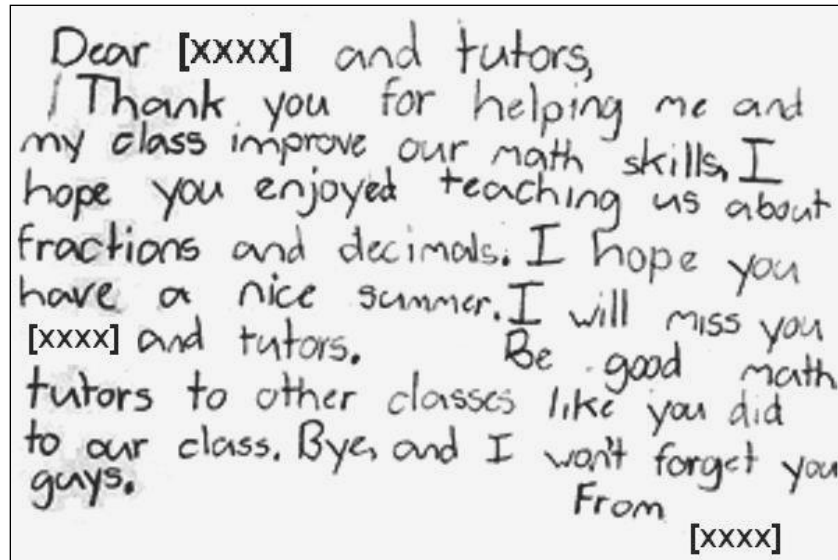 Dear [xxxx] and tutors,
Thank you for helping me and
my class improve our math skills, I
hope you enjoyed teaching us about
fractions and decimals. I hope you
have a nice summer. I will miss you
[xxxx] and tutors. Be good math
tutors to other classes like you did
to our class. Bye, and I won't forget you
guys.
From
[xxxx]